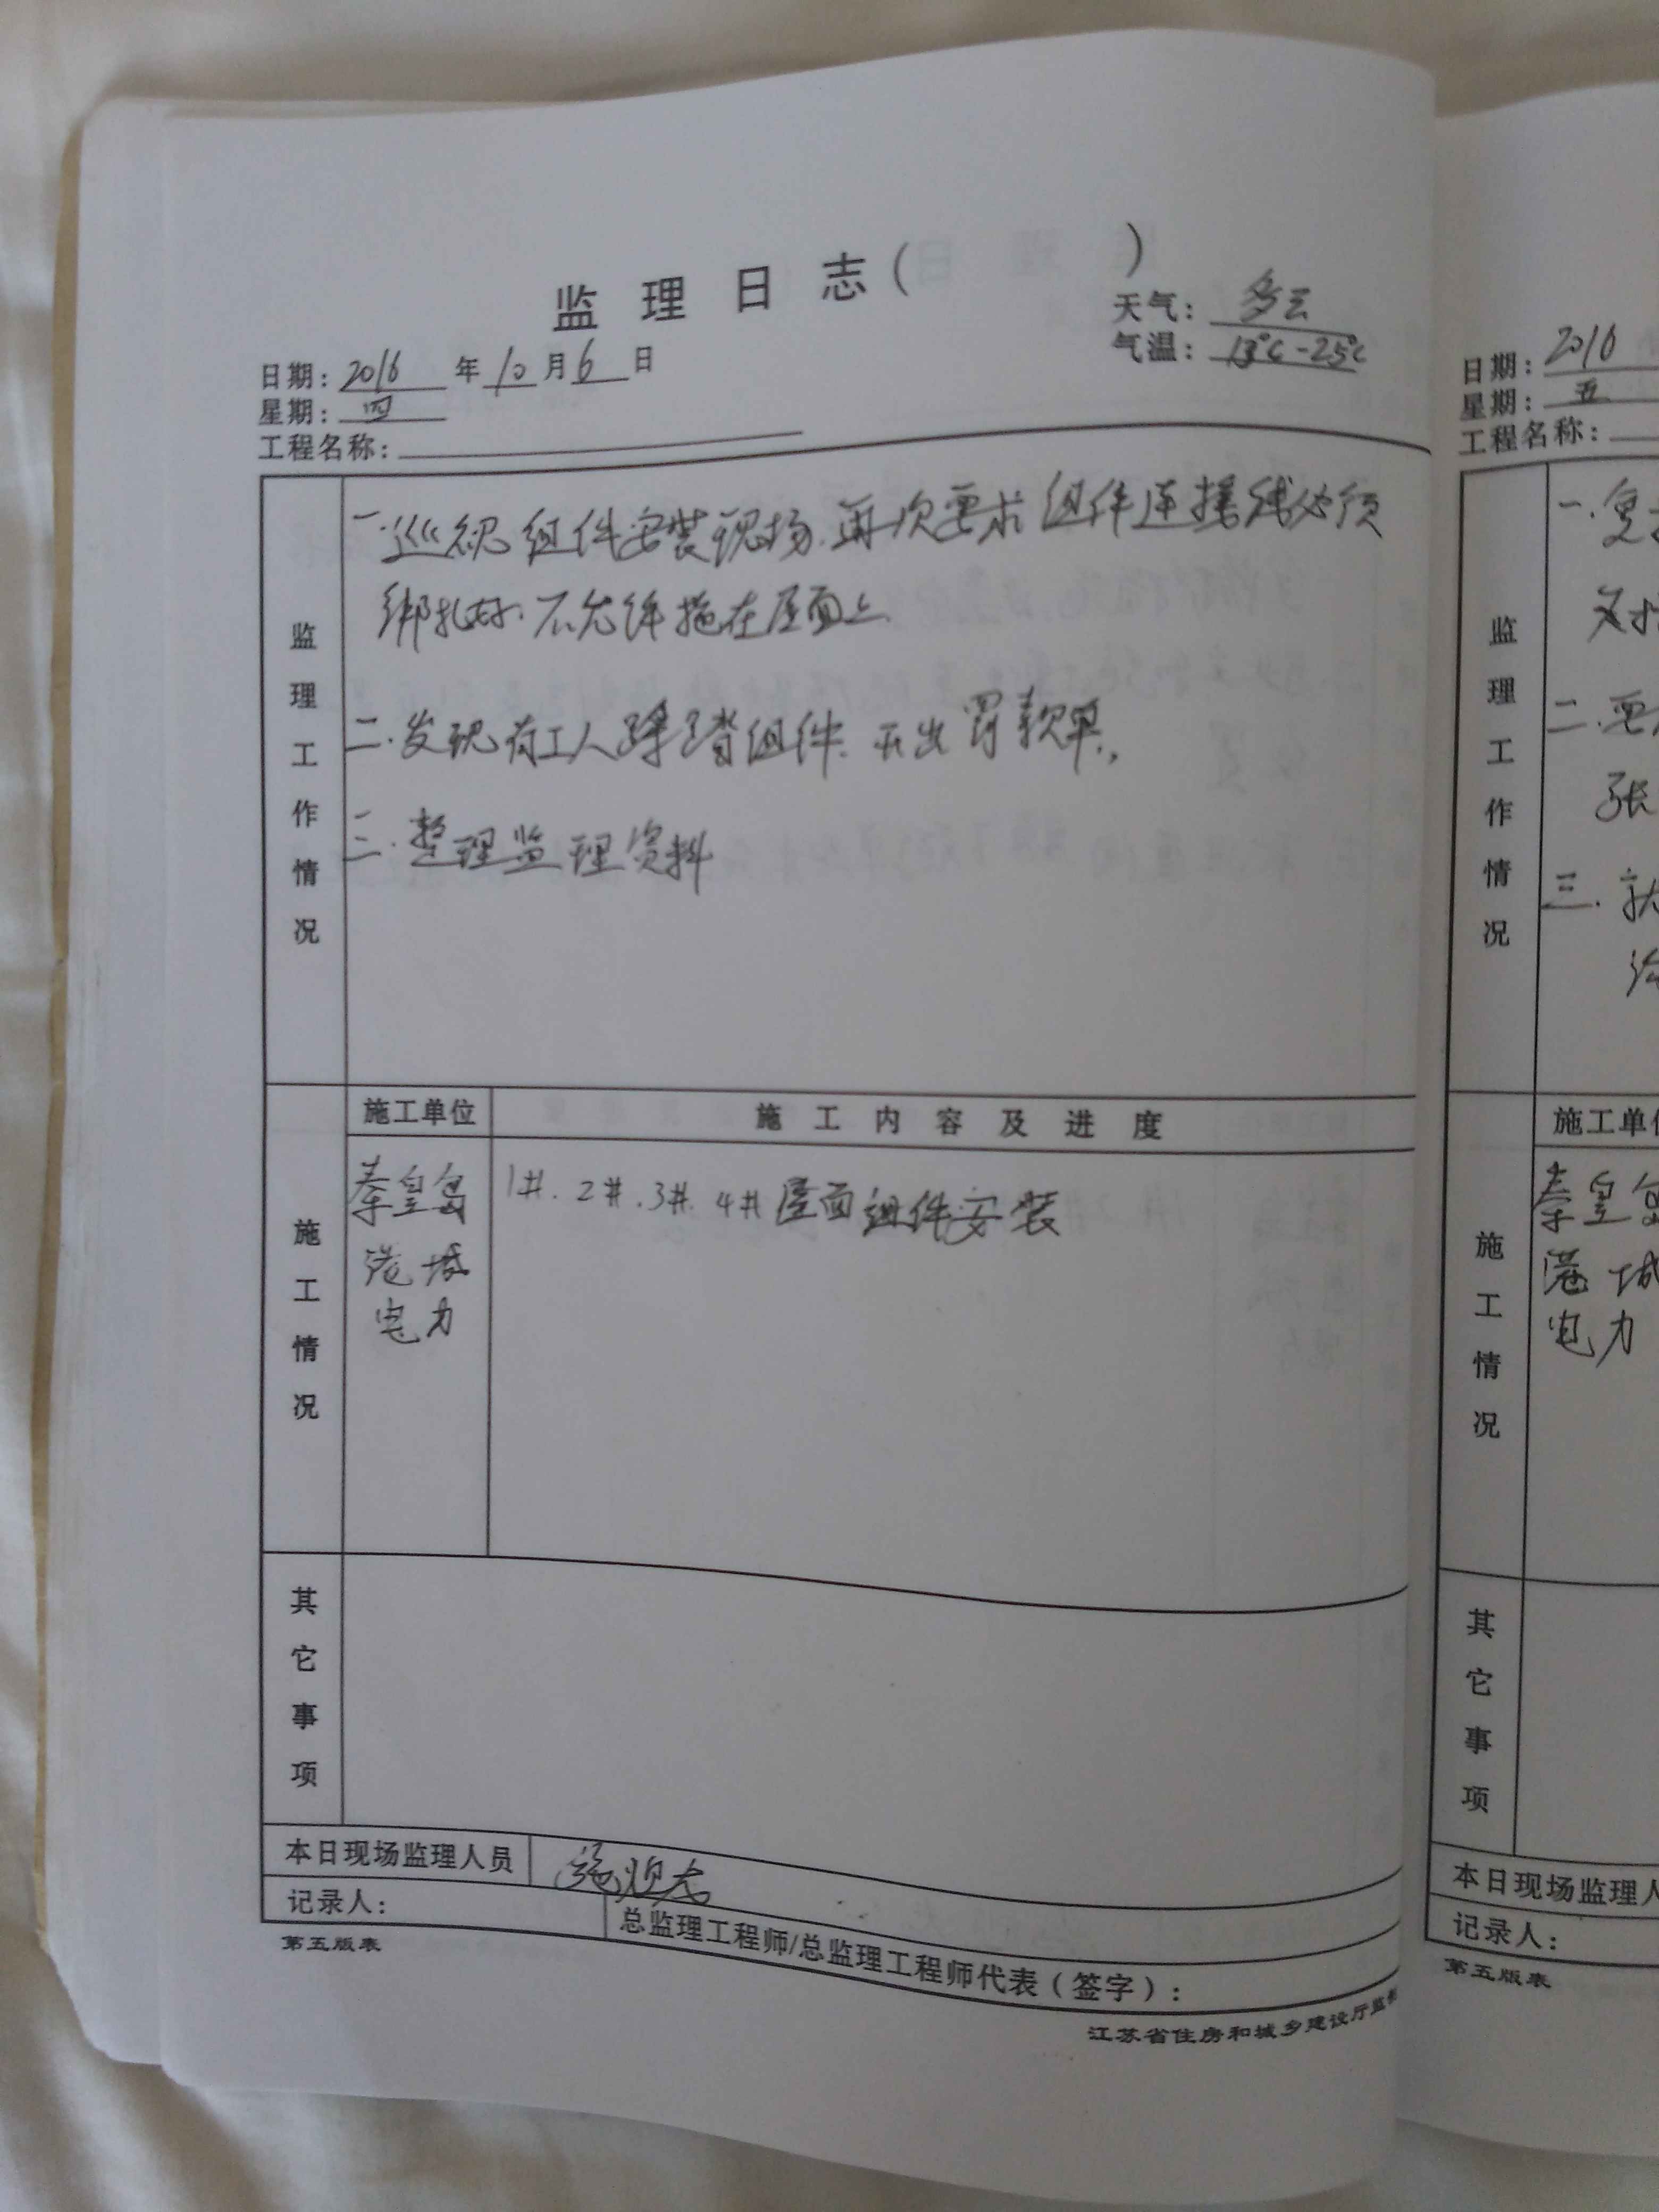 监理日志（　　）
天气：多云
气温：13℃-25℃
日期：2016年10月6日
星期：四
工程名称：
监理工作情况
一.巡视组件安装现场.再次要求组件连接线必须
绑扎好.不允许拖在屋面上.
二.发现有工人踩踏组件.开出罚款单.
三.整理监理资料
施工单位 施工内容及进度
施工情况
秦皇岛 1#.2#.3#.4#屋面组件安装
港城
电力
其它事项
本日现场监理人员
记录人： 总监理工程师/总监理工程师代表（签字）：
第五版表
江苏省住房和城乡建设厅监
日期：2016
星期：五
工程名称：
监理工作情况
一.复
二.要
张
三.
施工单位
施工情况
秦皇岛
港城
电力
其它事项
本日现场监理人
记录人：
第五版表